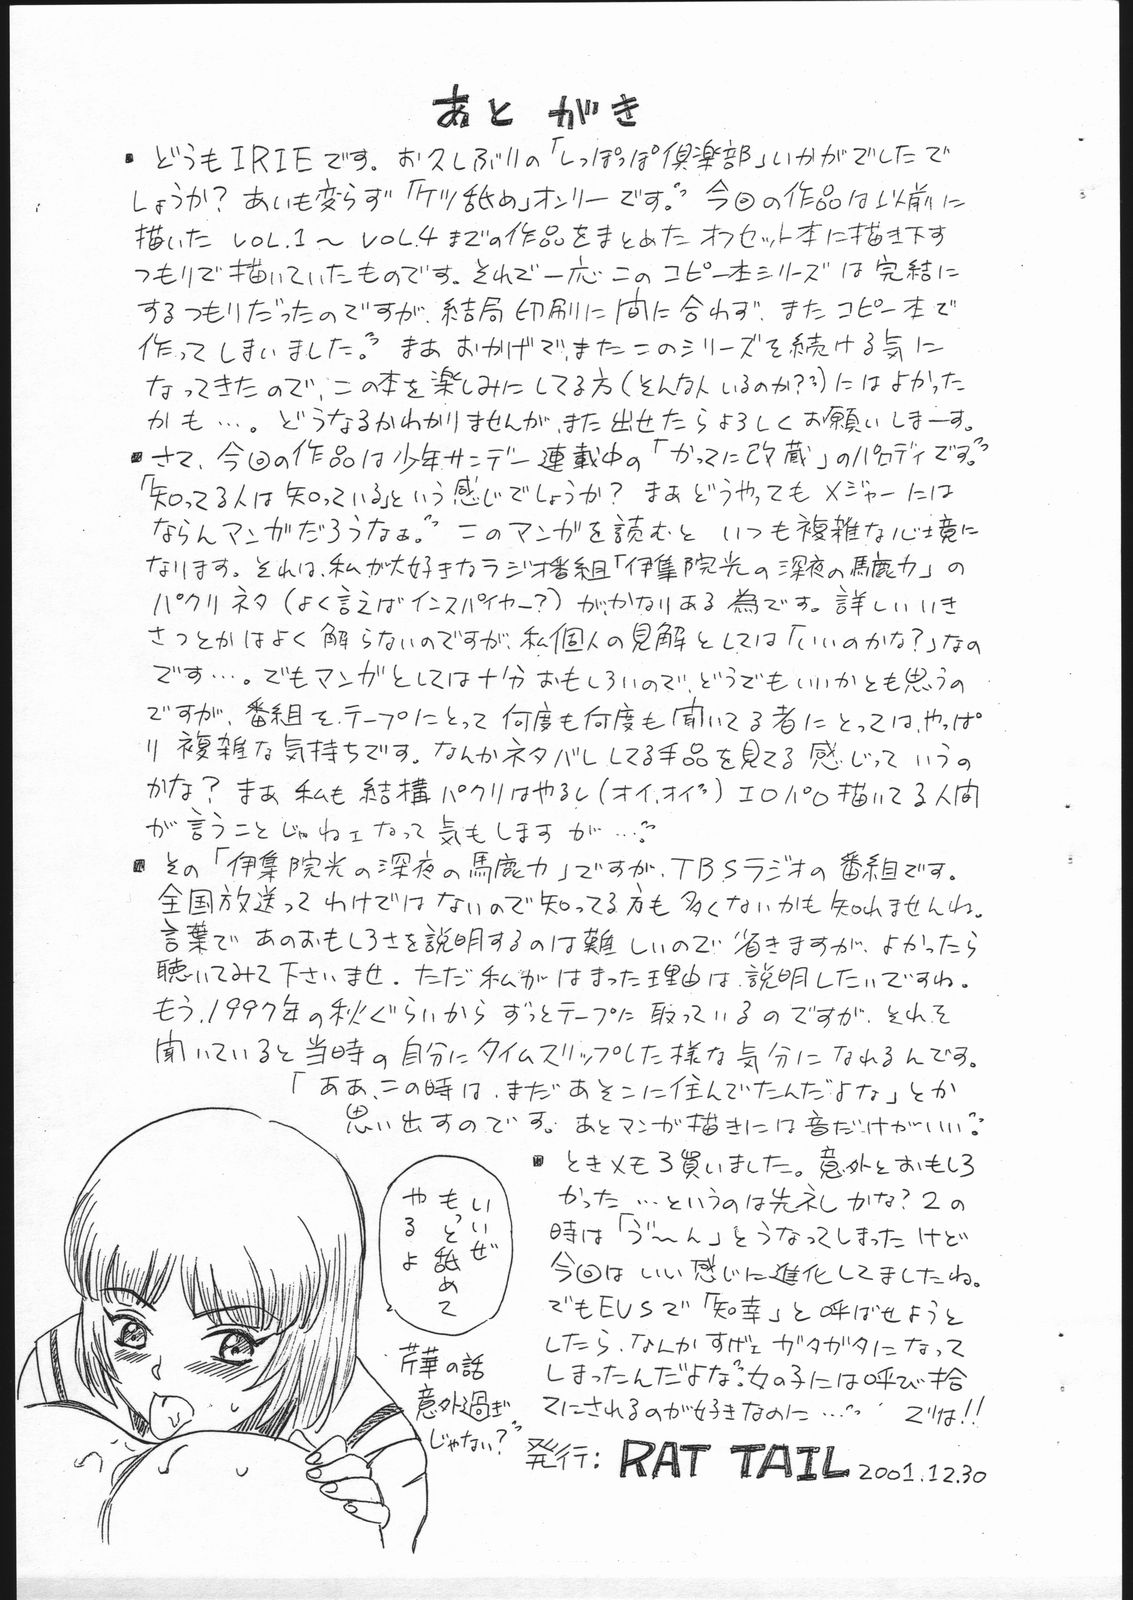 あとがき
・どうもIRIEです。お久しぶりの「しっぽっぽ倶楽部」いかがでしたで
しょうか？あいも変らず「ケツ舐め」オンリーです。今回の作品は以前に
描いた VOL.1〜VOL.4までの作品をまとめたオフセット本に描き下す
つもりで描いていたものです。それで一応このコピー本シリーズは完結に
するつもりだったのですが、結局印刷に間に合わず、またコピー本で
作ってしまいました。まあおかげで、またこのシリーズを続ける気に
なってきたので、この本を楽しみにしてる方(そんな人いるのか？)にはよかった
かも…。どうなるかわかりませんが、また出せたらよろしくお願いしまーす。
・さて、今回の作品は少年サンデー連載中の「かってに改蔵」のパロディです。
「知ってる人は知っている」という感じでしょうか？まあどうやってもメジャーには
ならんマンガだろうなぁ。このマンガを読むといつも複雑な心境に
なります。それは、私が大好きなラジオ番組「伊集院光の深夜の馬鹿力」の
パクリネタ(よく言えばインスパイヤー？)が、かなりある為です。詳しいいき
さつとかはよく解らないのですが、私個人の見解としては「いいのかな？」なの
です…。でもマンガとしては十分おもしろいので、どうでもいいかとも思うの
ですが、番組をテープにとって何度も何度も聞いてる者にとっては、やっぱ
り複雑な気持ちです。なんかネタバレしてる手品を見てる感じっていうの
かな？まあ私も結構パクリはやるし(オイ、オイ)エロパロ描いてる人間
が言うことじゃねェなって気もしますが…。
・その「伊集院光の深夜の馬鹿力」ですが、TBSラジオの番組です。
全国放送ってわけではないので知ってる方も多くないかも知れませんね。
言葉であのおもしろさを説明するのは難しいので省きますが、よかったら
聴いてみて下さいませ。ただ私がはまった理由は説明したいですね。
もう、1997年の秋ぐらいからずっとテープに取っているのですが、それを
聞いていると当時の自分にタイムスリップした様な気分になれるんです。
「ああ、この時は、まだあそこに住んでたんだよな」とか
思い出すのです。あとマンガ描きには音だけがいい。
・ときメモ3買いました。意外とおもしろ
かった…というのは失礼かな？2の
時は「う〜ん」とうなってしまったけど
今回はいい感じに進化してましたね。
でもEVSで「知幸」と呼ばせようと
したら、なんかすげェガタガタになって
しまったんだよな。女の子には呼び捨
てにされるのが好きなのに… では!!
いいぜ
もっと舐めて
やるよ
芹華の話
意外過ぎ
じゃない？
発行: RAT TAIL 2001.12.30